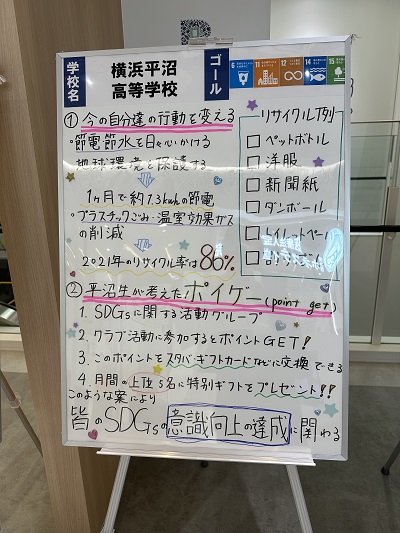 学校名
横浜平沼
高等学校
ゴール
6
11
12
13
14
15
① 今の自分達の行動を変える
・節電節水を日々心がける
地球環境を保護する
1ヶ月で約73kwhの節電
・プラスチックごみ・温室効果ガス
の削減
2021年のリサイクル率は86%
リサイクル例
ペットボトル
洋服
新聞紙
ダンボール
トイレットペーパー
② 平沼生が考えたポイゲー(point get)
1. SDGsに関する活動グループ
2. クラブ活動に参加するとポイントGET!
3. このポイントをスタバギフトカードなどに交換できる
4. 月間の上位5名に特別ギフトをプレゼント!!
このような案により
皆のSDGsの意識向上の達成に関わる